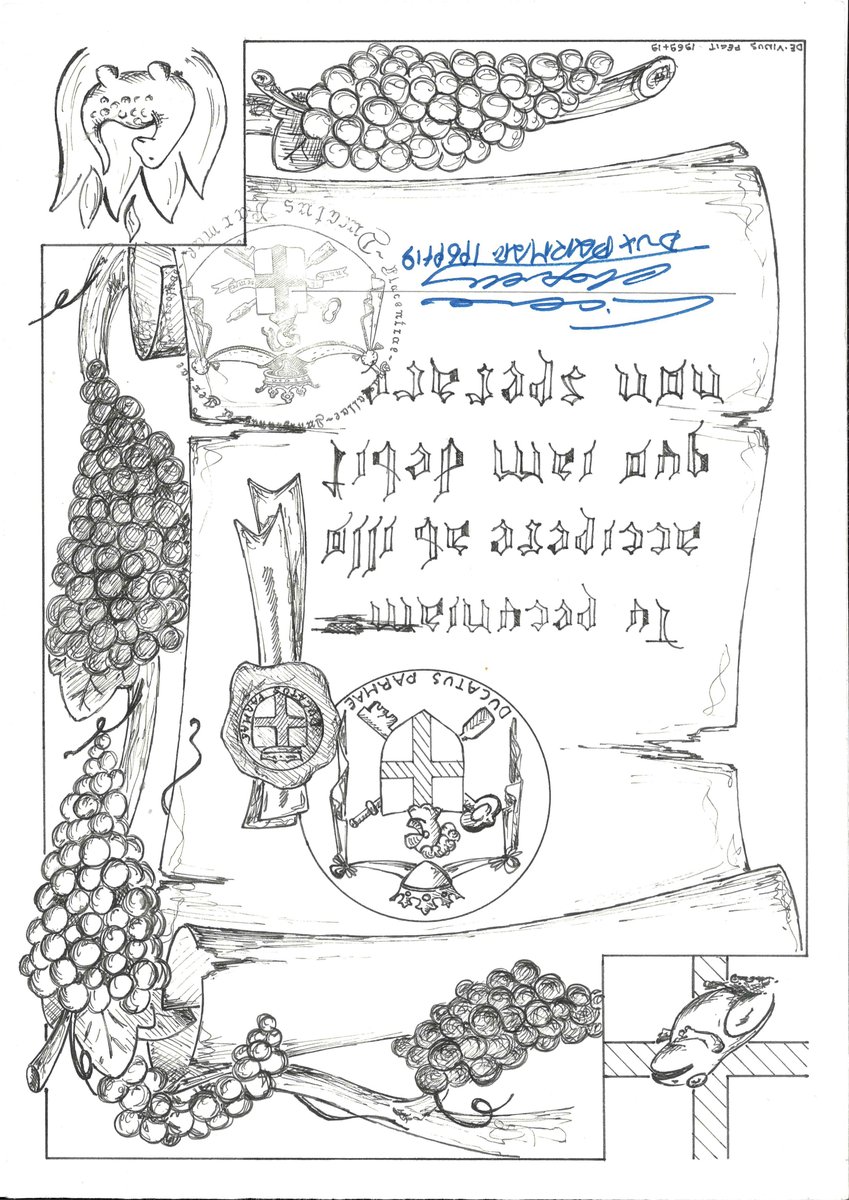 DUCATUS PARMAE
DUCATUS PARMAE
Tu pecuniam
accipere ab illo
quo iam debit
non sperare
DUX PARMAE 1969+19
Ducatus Parmae - Placentiae
DE·VINUS PEGIT 1969+19